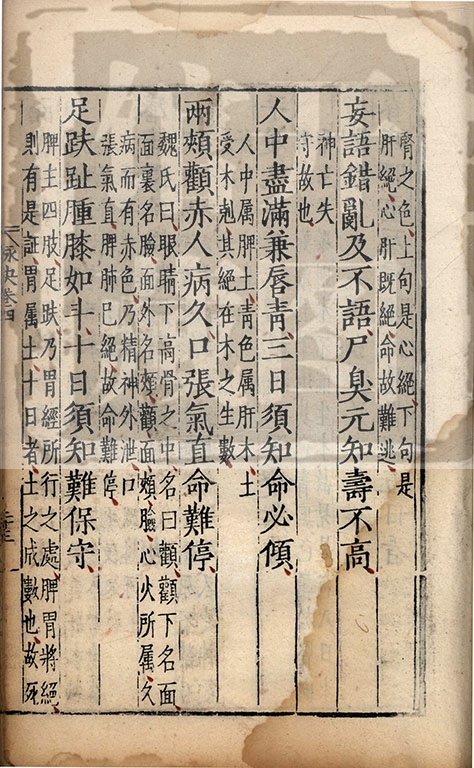 腎之色、上句是心絕、下句是
肝絕、心肝既絕、命故難逃、
妄語錯亂及不語尸臭元知壽不高、
神亡失
守故也、
人中盡滿兼唇青、三日須知命必傾、
人中属脾土、青色属肝木、土
受木剋、其絕在木之生數、
兩頰顴赤人病久、口張氣直命難停、
魏氏曰、眼睛下高骨之中、名曰顴、顴下名面、
面裏名臉、面外名頰、顴面頰臉、心火所属、久
病而有赤色、乃精神外泄、口
張氣直、脾肺已絕、故命難停、
足趺趾腫膝如斗、十日須知難保守、
脾主四肢、足趺乃胃經所行之處、脾胃將絕、
則有是証、胃属土、十日者、土之成數也、故死
訣卷四